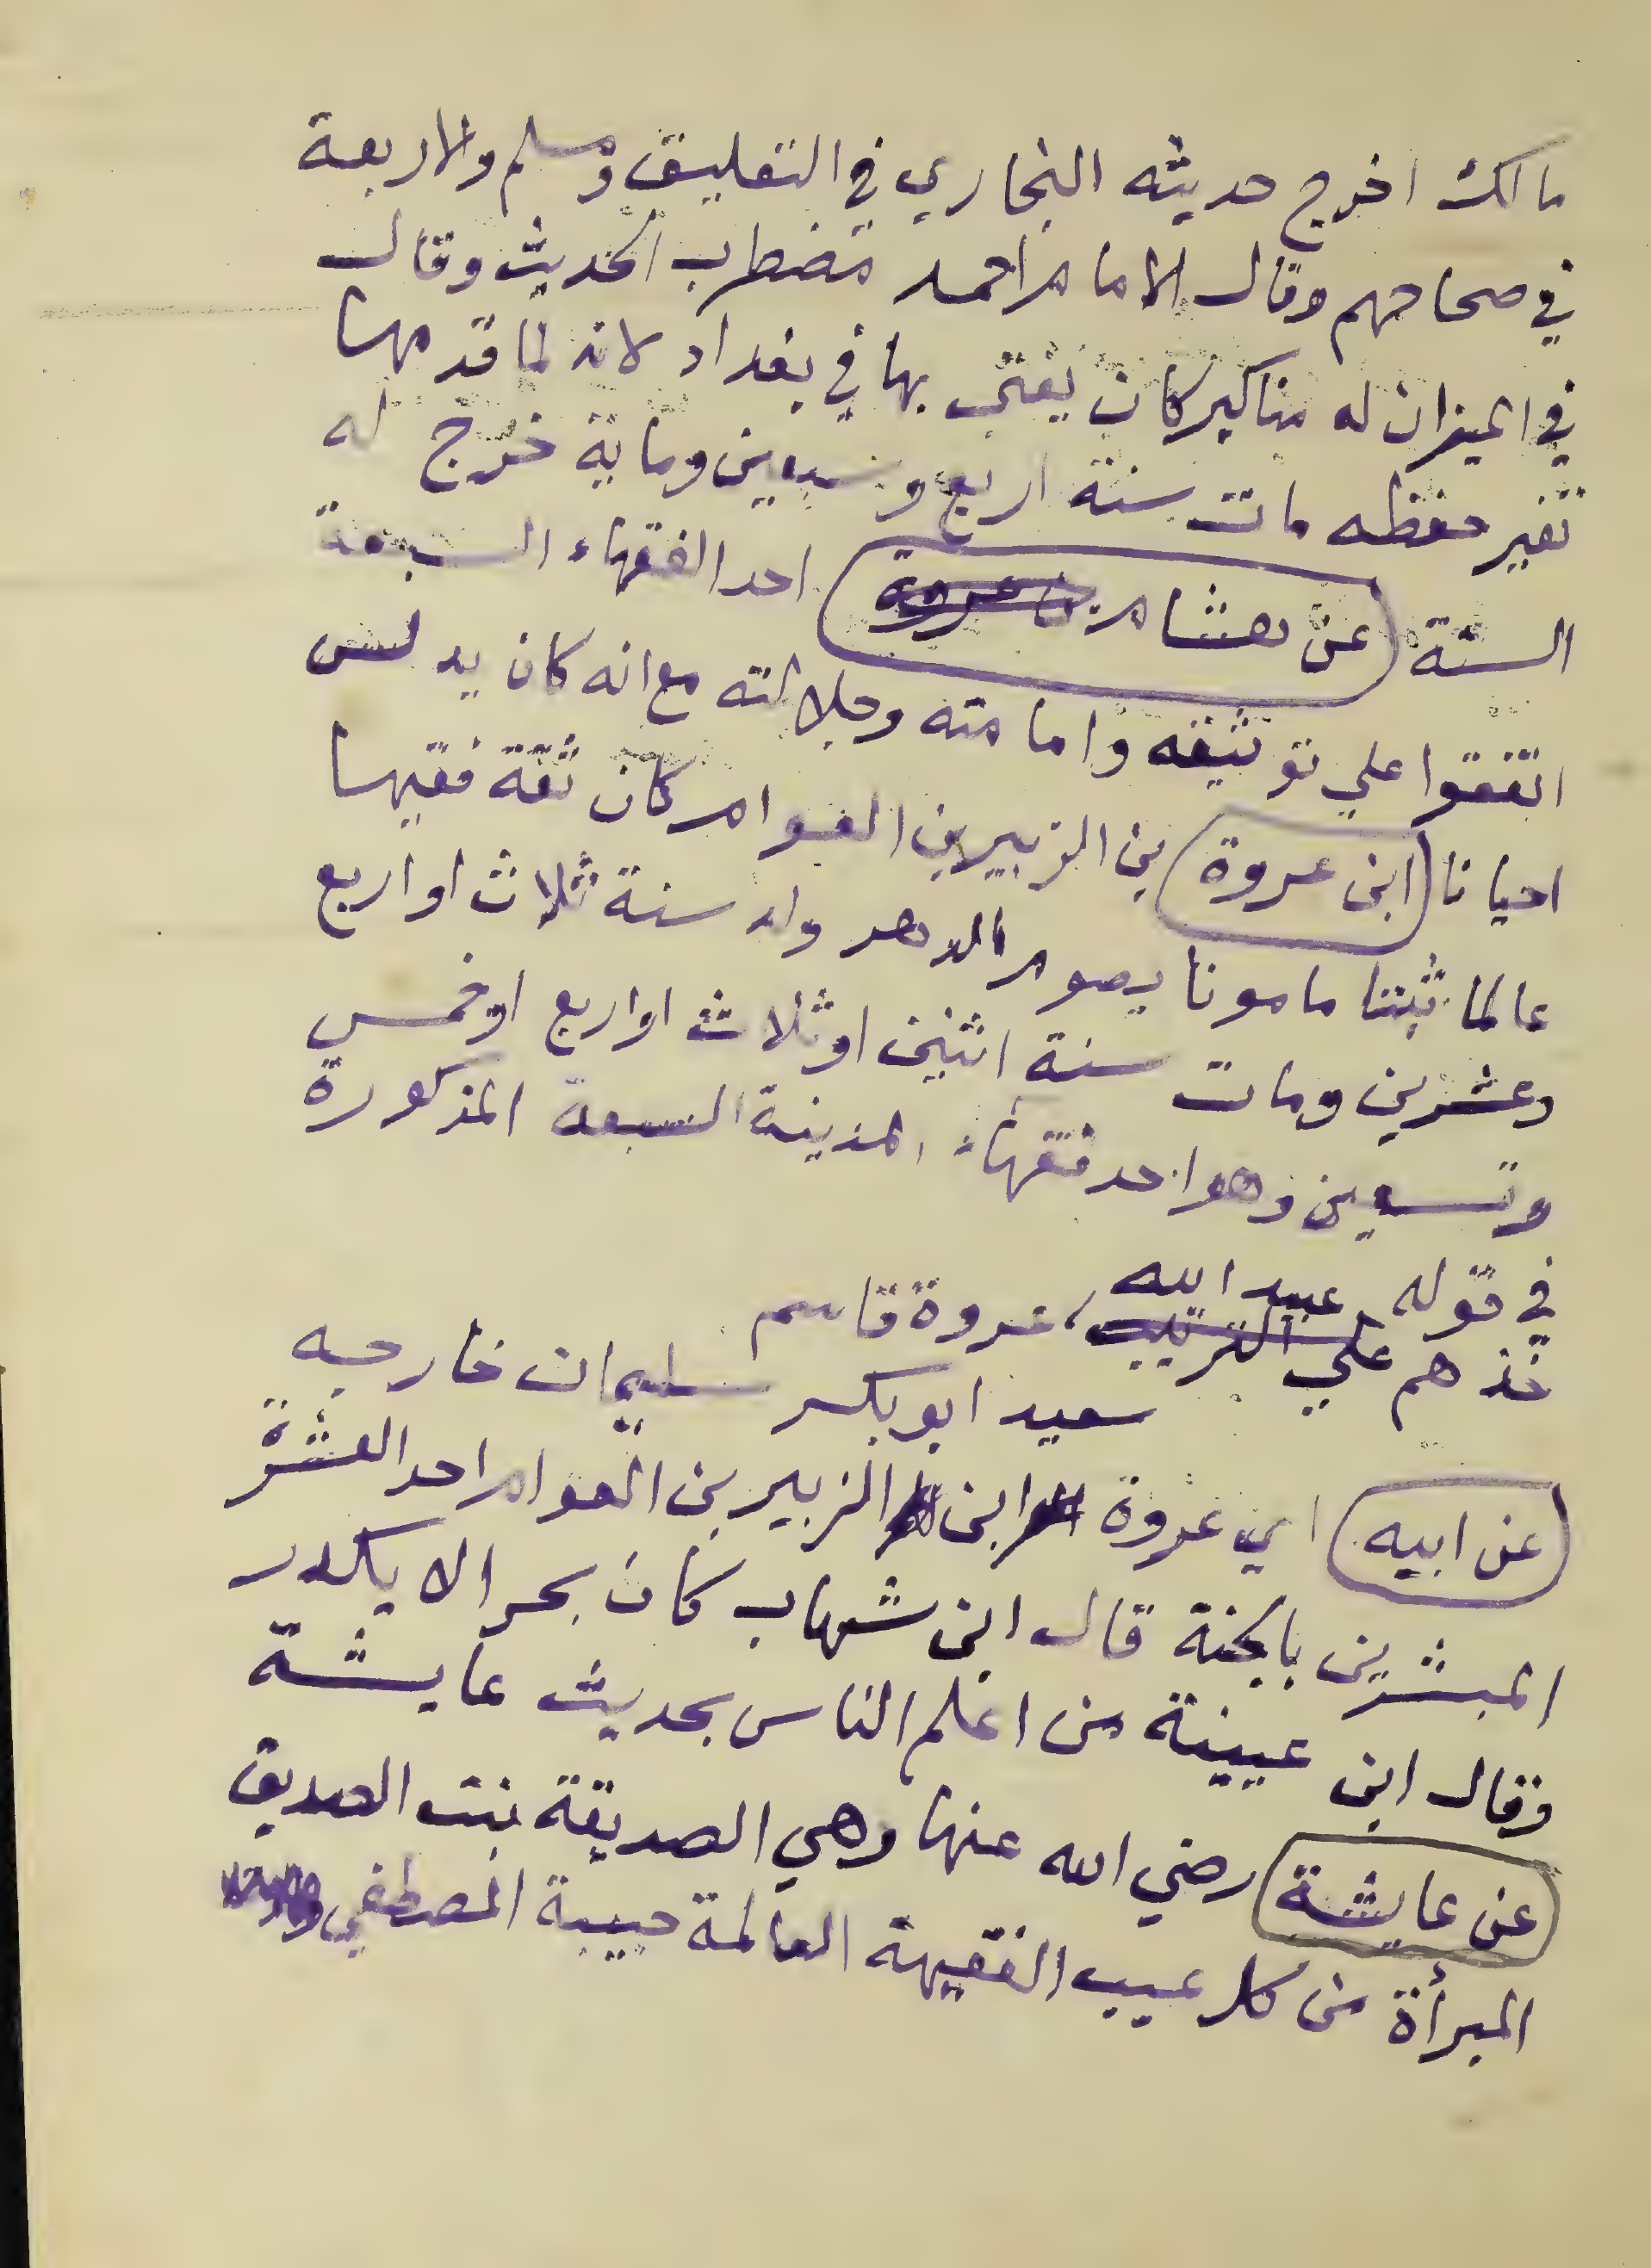 مالك اخرج حديثه البخاري في التعليق ومسلم والاربعة
في صحاحهم وقال الامام احمد مضطرب الحديث وقال
في الميزان له مناكير كان يفتي بها في بغداد لانه لما قدمها
تغير حفظه مات سنة اربع وسبعين وماية خرج له
الستة (عن هشام) احد الفقهاء السبعة
اتفقوا علي توثيقه وامامته وجلالته مع انه كان يدلس
احيانا (ابن عروة) بن الزبير بن العوام كان ثقة فقيها
عالما ثبتا مامونا يصوم الدهر ولد سنة ثلاث او اربع
وعشرين ومات سنة اثنين او ثلاث او اربع او خمس
وتسعين وهو احد فقهاء المدينة السبعة المذكورة
في قوله
فخذهم عبيد الله، عروة قاسم
سعيد ابو بكر سليمان خارجه
(عن ابيه) اي عروة ابن الزبير بن العوام احد العشرة
المبشرين بالجنة قال ابن شهاب كان بحرا لا يكدر
وقال ابن عيينة من اعلم الناس بحديث عايشة
(عن عايشة) رضي الله عنها وهي الصديقة بنت الصديق
المبرأة من كل عيب الفقيهة العالمة حبيبة المصطفي